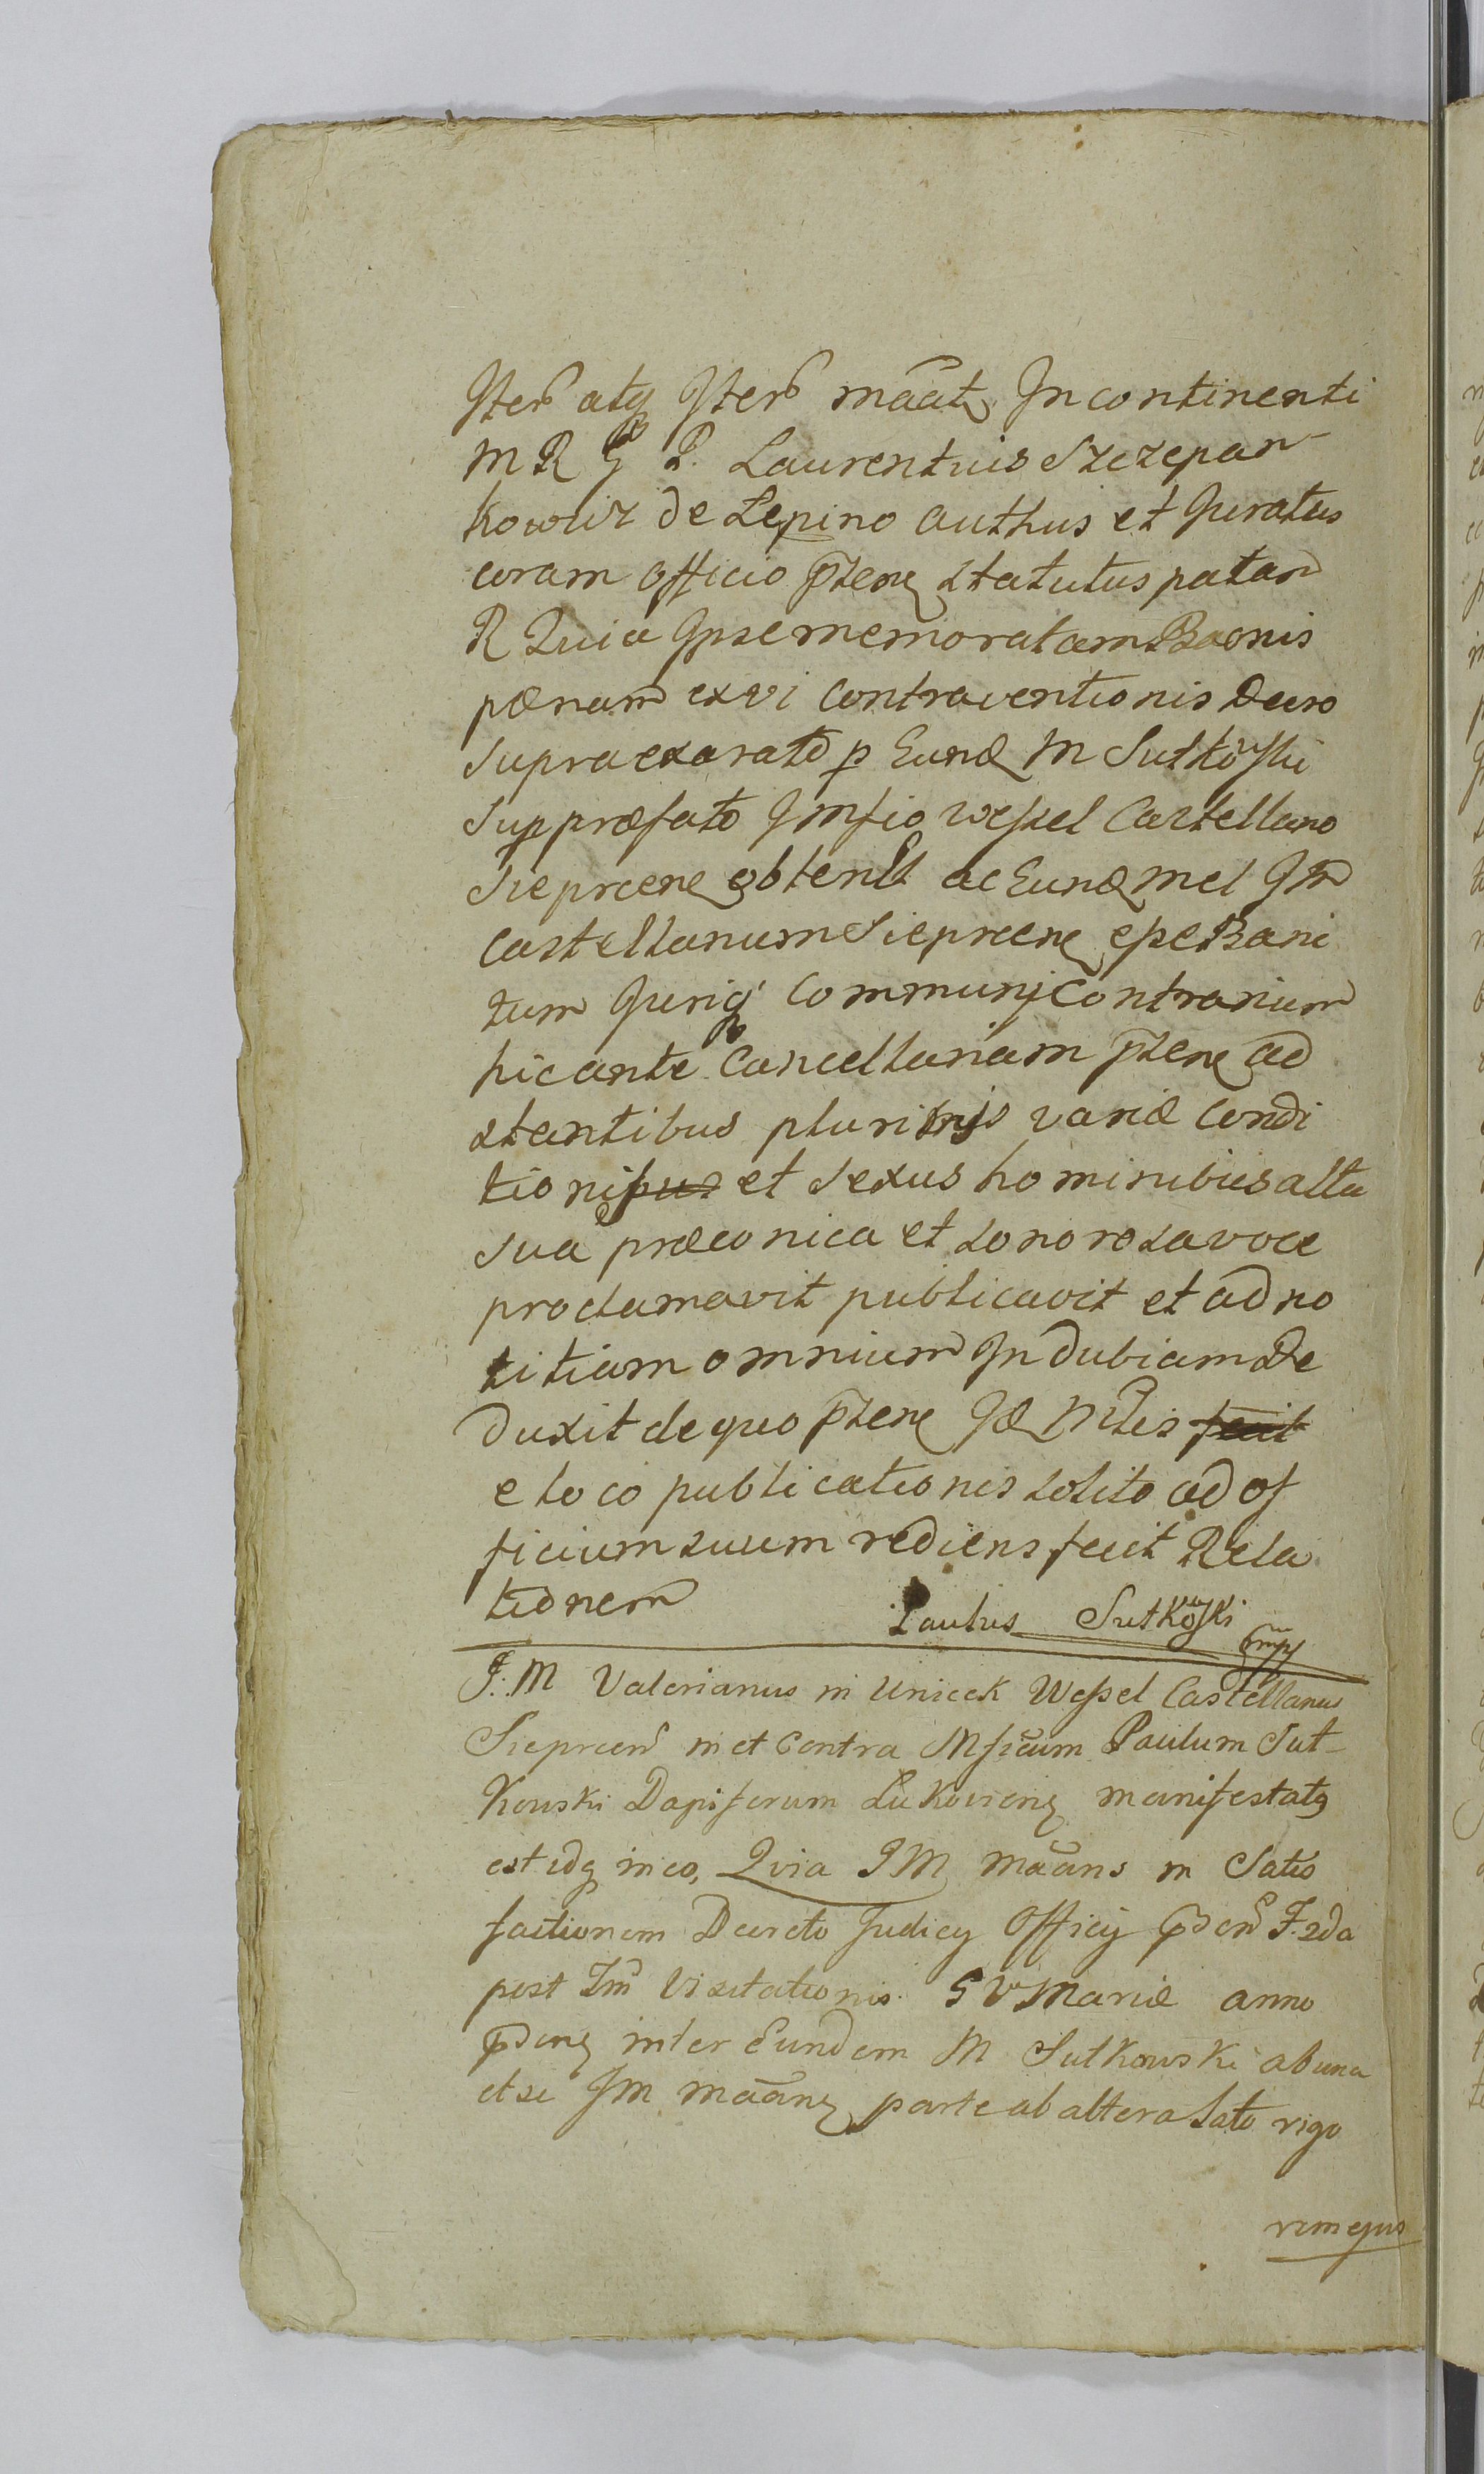 Iter̃ atq₃ Iter̃ mãat₃ In continenti
M R G P. Laurentius Szczepan
kowicz de Lepino authus et Juratus
coram officio p̃ten₃ statutus patam
R Quia Ipse memoratam Baonis
pœnam ex vi contraventionis Decro
supra exarato p Eund₃ M Sutkowski
Sup præfato J Mfio Wessel Castellano
Sieprcen₃ obtenit ac Eund₃ mel J M
Castellanum Sieprcen₃ esse Bani
tum Juriq₃ Communj Contrarium
hic ante Cancellariam p̃ten₃ ad
stantibus plurimis variæ Condi
tionis et sexus hominibus alta
sua præconica et sonorosa voce
proclamavit publicavit et ad no
titiam omnium Indubiam De
duxit de quo p̃ten₃ Id₃ Mtlis fecit
e loco publicationis solito ad of
ficium suum rediens fecit Rela
tionem
Paulus Sutkowski mp
J. M Valerianus in Unieck Wessel Castellanus
Sieprcen̄ in et contra Mficum Paulum Sut-
kowski Dapiferum Lukovien₃ manifestat₉
est idq₃ in eo, Quia J M mãans in Satis
factionem Decreto Judicy Officij p̃den̄ F. 2da
post Fm̃ Visitationis S V Mariæ anno
p̃den₃ inter Eundem M Sutkowski ab una
et se J M mãan₃ parte ab altera lato rigo
rem ejus